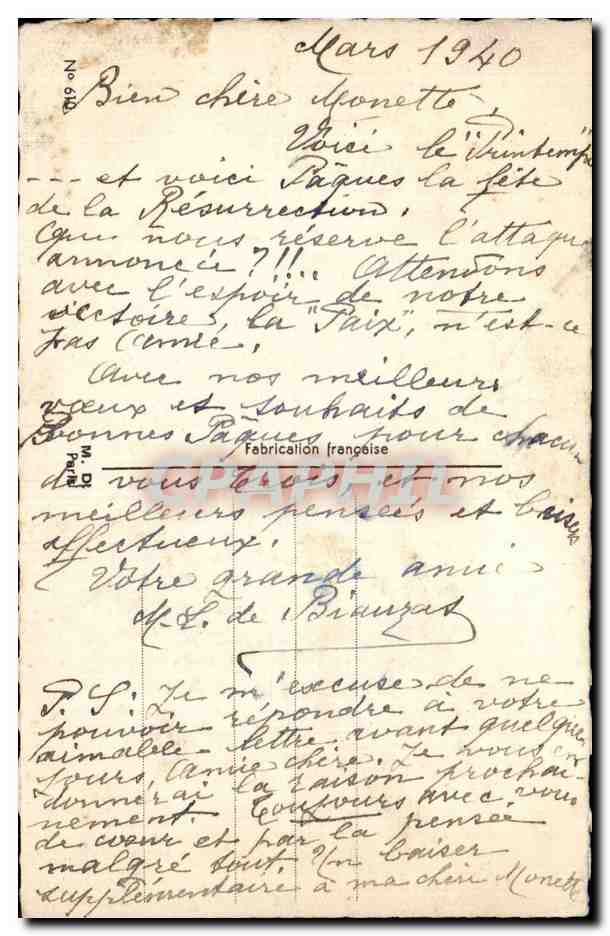 Mars 1940
No 610
Bien chère Monette,
Voici le "Printemps"
--- et voici Pâques la fête
de la Résurrection.
Que nous réserve l'attaque
annoncée?!!!... Attendons
avec l'espoir de notre
victoire, la "Paix", n'est-ce
pas amie.
Avec nos meilleurs
vœux et souhaits de
Bonnes Pâques pour chacun
Fabrication française
M. D.
Paris
CPAPHIL
de vous trois, et nos
meilleurs pensées et baisers
affectueux.
Votre grande amie
M-L. de Biauzat
P.S: Je m'excuse de ne
pouvoir répondre à votre
aimable lettre avant quelques
jours, amie chère. Je vous en
donnerai la raison prochai-
nement. Toujours avec vous
de cœur et par la pensée
malgré tout. Un baiser
supplémentaire à ma chère Monette